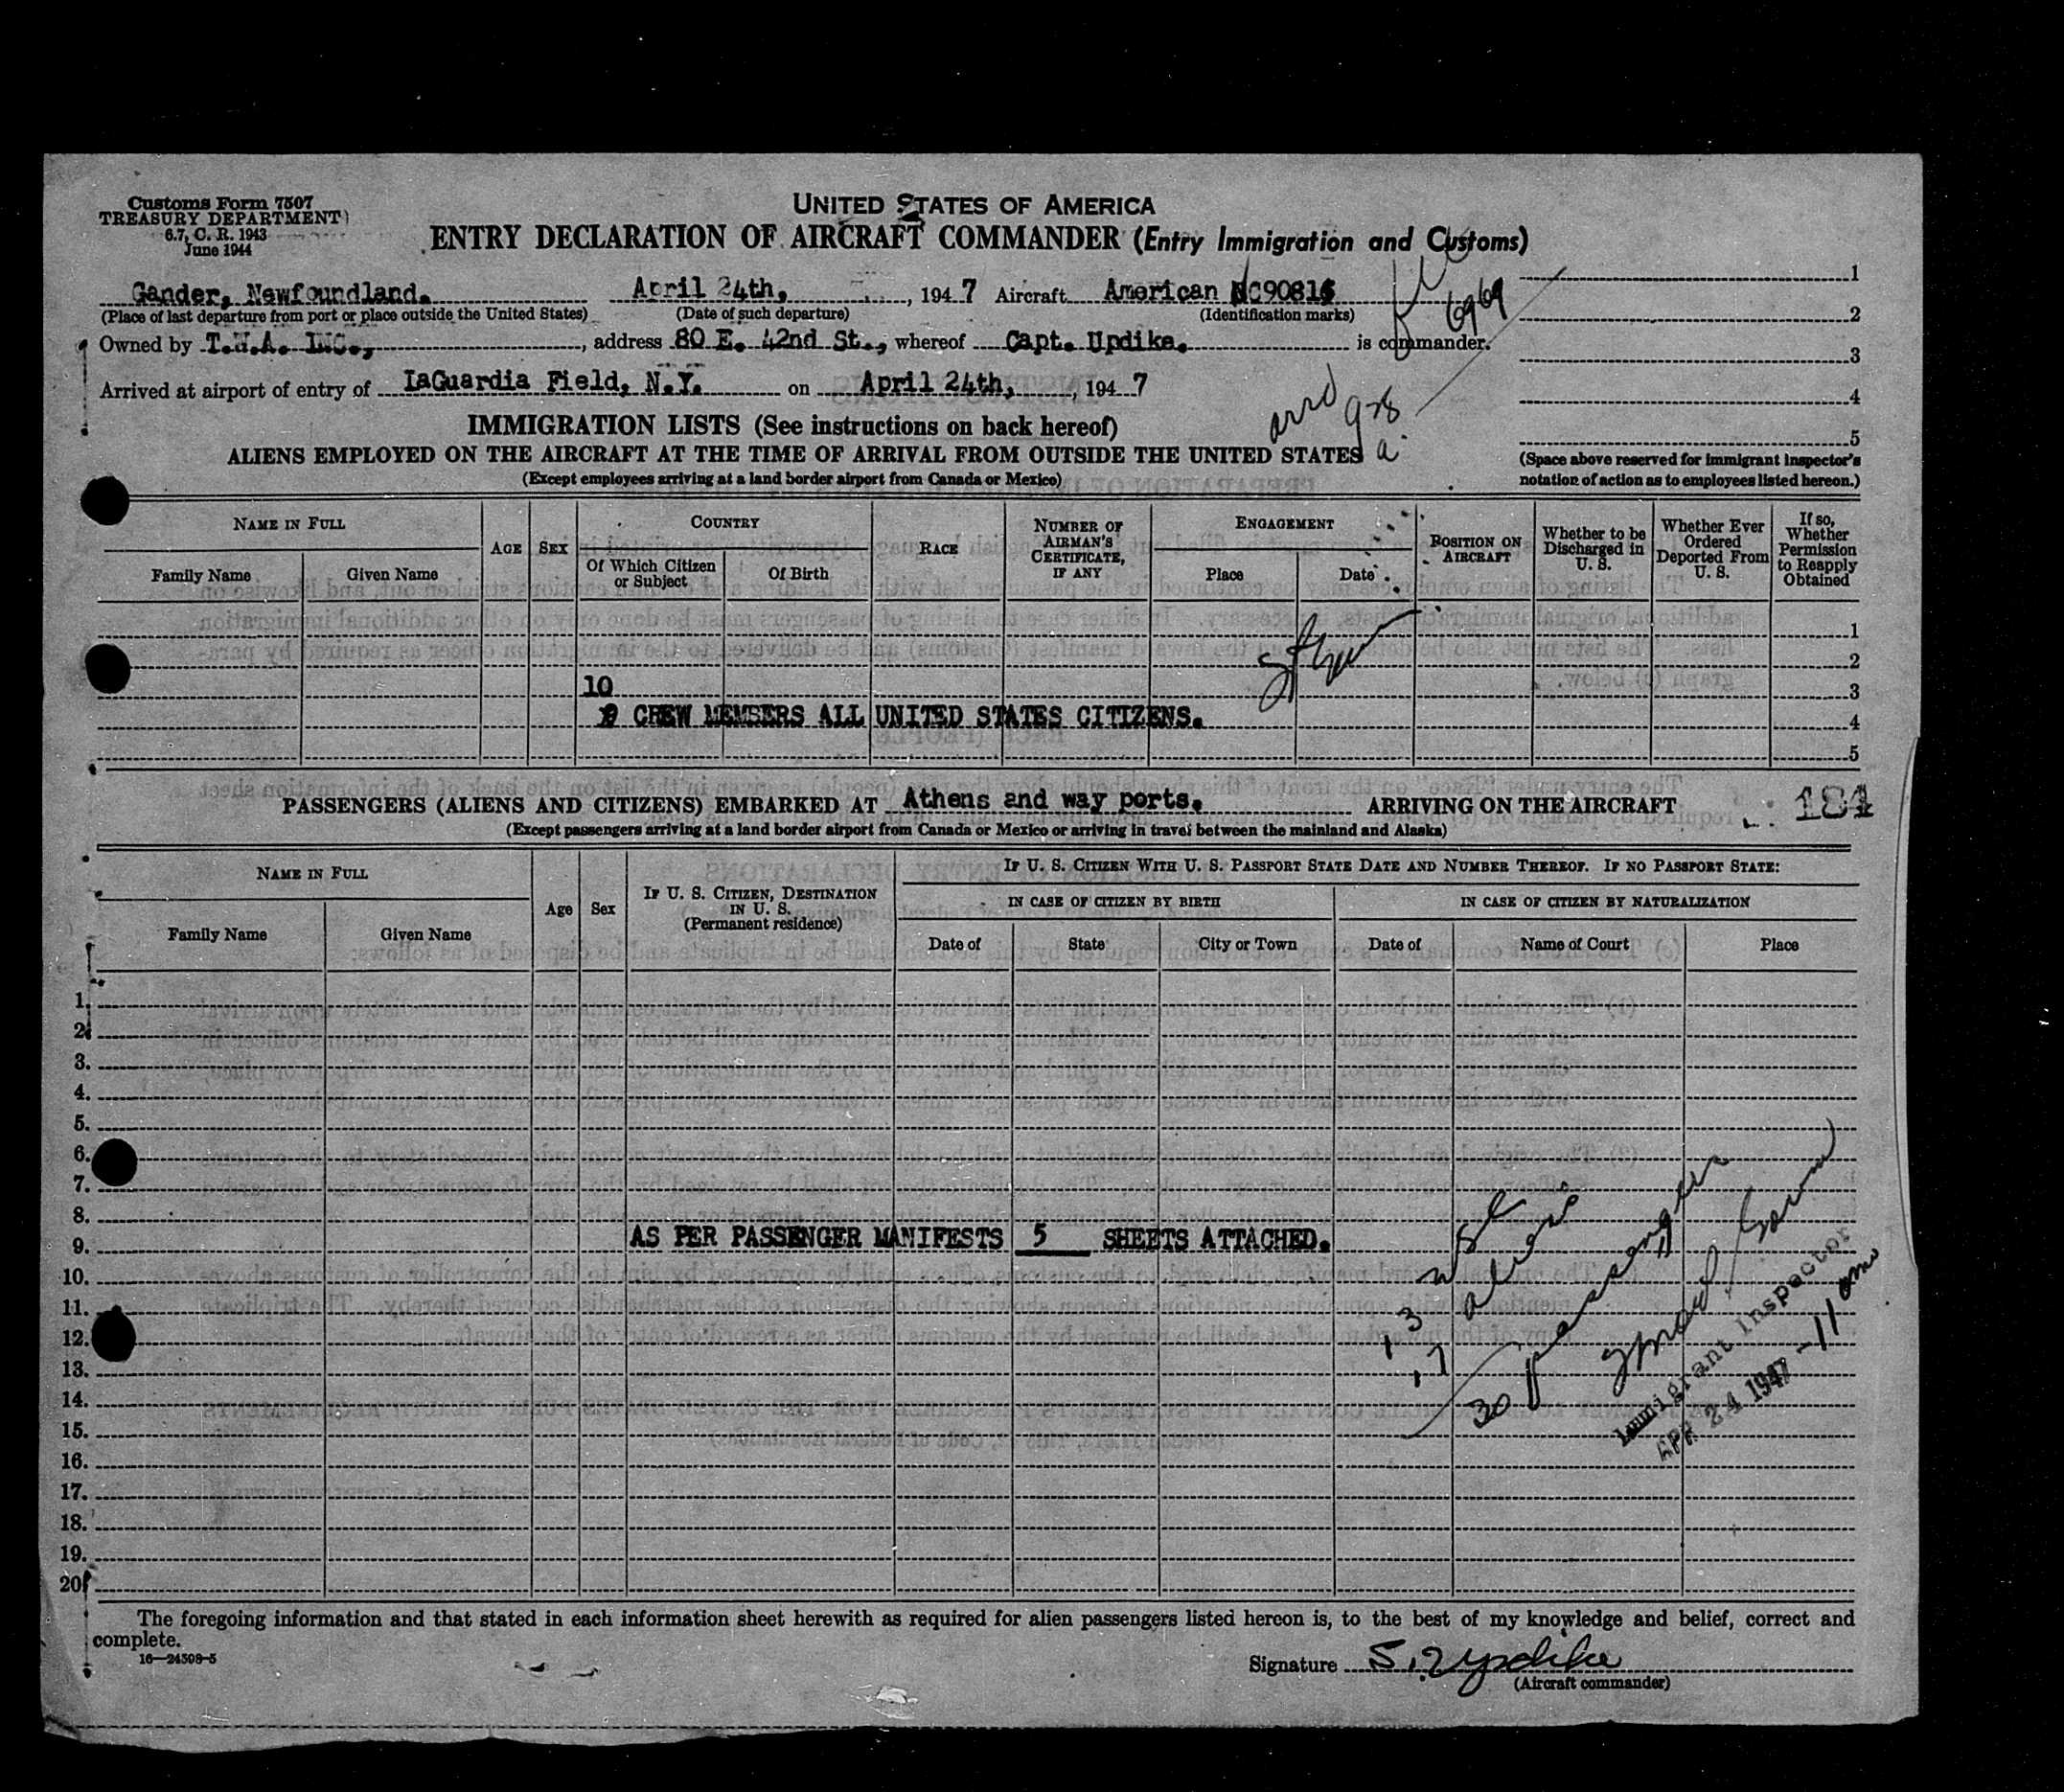 Customs Form 7507
TREASURY DEPARTMENT
6.7, C. R. 1943
June 1944
UNITED STATES OF AMERICA
ENTRY DECLARATION OF AIRCRAFT COMMANDER (Entry Immigration and Customs)
Gander, Newfoundland. April 24th, , 1947 Aircraft American NC90814
(Place of last departure from port or place outside the United States) (Date of such departure) (Identification marks)
6969
Owned by T.W.A. INC., , address 80 E. 42nd St., whereof Capt. Updike. is commander.
Arrived at airport of entry of LaGuardia Field, N.Y. on April 24th, , 1947
arrd 928 a
1
2
3
4
5
(Space above reserved for immigrant inspector's
notation of action as to employees listed hereon.)
IMMIGRATION LISTS (See instructions on back hereof)
ALIENS EMPLOYED ON THE AIRCRAFT AT THE TIME OF ARRIVAL FROM OUTSIDE THE UNITED STATES
(Except employees arriving at a land border airport from Canada or Mexico)
NAME IN FULL
Family Name Given Name
AGE SEX
COUNTRY
Of Which Citizen or Subject Of Birth
RACE
NUMBER OF AIRMAN'S CERTIFICATE, IF ANY
ENGAGEMENT
Place Date
POSITION ON AIRCRAFT
Whether to be Discharged in U. S.
Whether Ever Ordered Deported From U. S.
If so, Whether Permission to Reapply Obtained
1
2
10 3
9 CREW MEMBERS ALL UNITED STATES CITIZENS. 4
5
PASSENGERS (ALIENS AND CITIZENS) EMBARKED AT Athens and way ports. ARRIVING ON THE AIRCRAFT 184
(Except passengers arriving at a land border airport from Canada or Mexico or arriving in travel between the mainland and Alaska)
NAME IN FULL
Family Name Given Name
Age Sex
IF U. S. CITIZEN, DESTINATION IN U. S. (Permanent residence)
IF U. S. CITIZEN WITH U. S. PASSPORT STATE DATE AND NUMBER THEREOF. IF NO PASSPORT STATE:
IN CASE OF CITIZEN BY BIRTH IN CASE OF CITIZEN BY NATURALIZATION
Date of State City or Town Date of Name of Court Place
1.
2.
3.
4.
5.
6.
7.
8.
9. AS PER PASSENGER MANIFESTS 5 SHEETS ATTACHED.
10.
11.
12.
13.
14.
15.
16.
17.
18.
19.
20.
13 usc
17 aliens
30 passengers
Immigrant Inspector
APR 24 1947 -11 am
The foregoing information and that stated in each information sheet herewith as required for alien passengers listed hereon is, to the best of my knowledge and belief, correct and
complete.
16—24508-5
Signature S. Updike
(Aircraft commander)